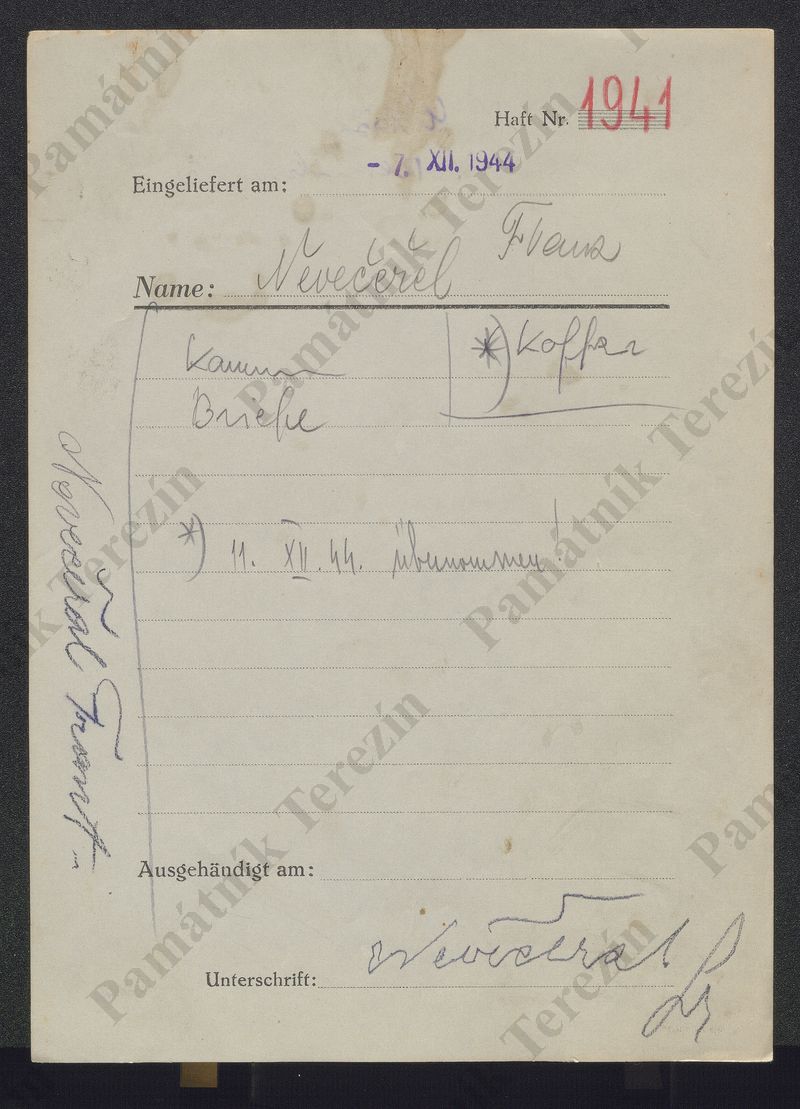 Haft Nr. 1941
- 7. XII. 1944
Eingeliefert am:
Name: Nevečeřel Franz
Kamm *) Koffer
Briefe
*) 11. XII. 44. übernommen!
Nevečeřal Frant.
Ausgehändigt am:
Unterschrift: Nevečeřal
Památník Terezín
Památník Terezín
Památník Terezín
Památník Terezín
Památník Terezín